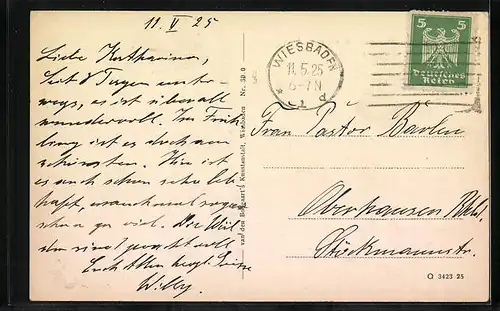 11. V 25
Liebe Katharina,
Seit 8 Tagen unter-
wegs, es ist überall
wundervoll. Im Früh-
ling ist es doch am
schönsten. Hier ist
es auch schon sehr leb-
haft, manchmal sogar
schon zu viel. Die
sind prachtvoll
Euch Allen herzl. Grüße
Willy.
van den Bogaart's Kunstanstalt, Wiesbaden Nr. 30
WIESBADEN
11.5.25
6-7N
* 1 d
5 5
Deutsches
Reich
Frau Pastor
Oberhausen Rhld.
Stöckmannstr.
Q 3423 25